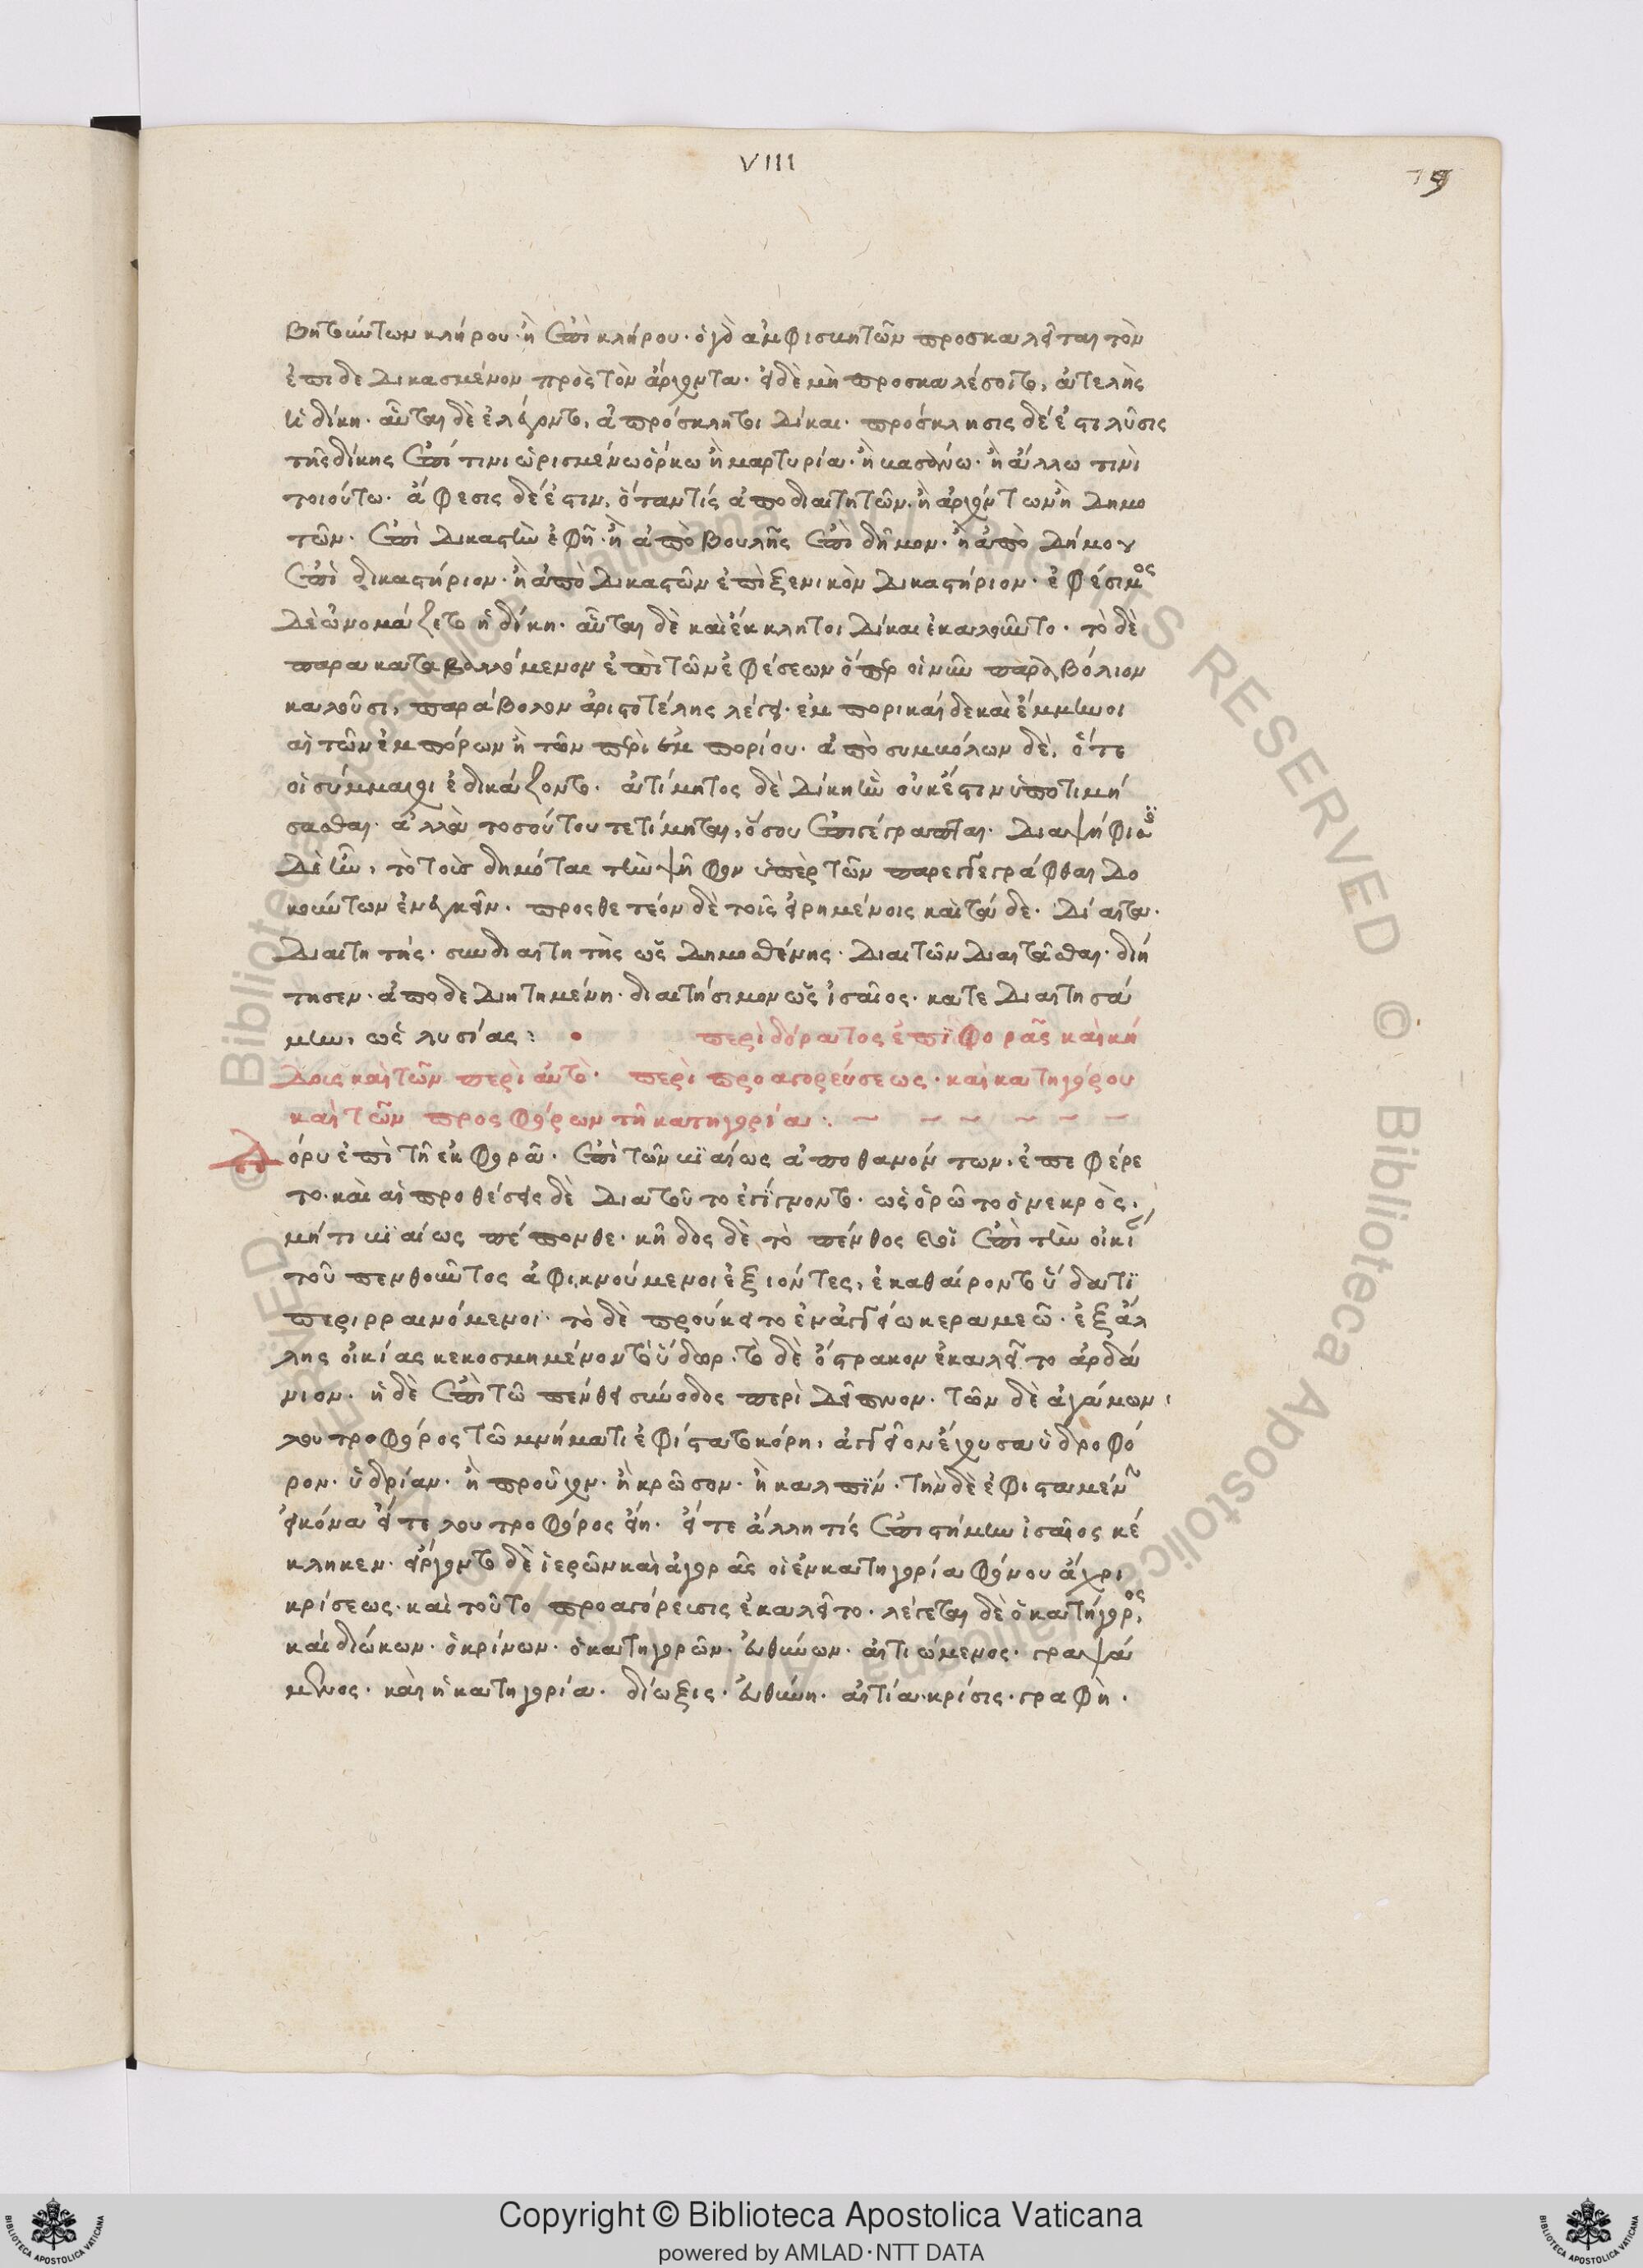 VIII
79
βητούντων κλήρου· ἢ ἐπικλήρου· ὁ γὰρ ἀμφισβητῶν προσκαλεῖται τὸν
ἐπιδεδικασμένον πρὸς τὸν ἄρχοντα· εἰ δὲ μὴ προσκαλέσοιτο, ἀτελὴς
ἡ δίκη· αὗται δὲ ἐλέγοντο, ἀπρόσκλητοι δίκαι· πρόσκλησις δέ ἐστι λῦσις
τῆς δίκης ἐπί τινι ὡρισμένω ὅρκω ἢ μαρτυρία· ἢ βασάνω· ἢ ἄλλω τινὶ
τοιούτω· ἄφεσις δέ ἐστιν, ὅταν τίς ἀπο διαιτητῶν· ἢ ἀρχόντων ἢ δημο
τῶν· ἐπὶ δικαστὴν ἐφῆ· ἢ ἀπὸ βουλῆς ἐπὶ δῆμον· ἢ ἀπὸ δήμου
ἐπὶ δικαστήριον· ἢ ἀπὸ δικαστῶν ἐπὶ ξενικὸν δικαστήριον· ἐφέσιμος
δὲ ὠνομάζετο ἡ δίκη· αὗται δὲ καὶ ἔκκλητοι δίκαι ἐκαλοῦντο· τὸ δὲ
παρακαταβαλλόμενον ἐπὶ τῶν ἐφέσεων ὅπερ οἱ νῦν παραβόλιον
καλοῦσι, παράβολον ἀριστοτέλης λέγει· ἐμπορικαὶ δὲ καὶ ἔμμηνοι
αἱ τῶν ἐμπόρων ἢ τῶν περὶ ἐμπορίου· ἀπὸ συμβόλων δὲ, ὅτε
οἱ σύμμαχοι ἐδικάζοντο· ἀτίμητος δὲ δίκη ἣν οὐκ ἔστιν ὑποτιμή
σασθαι· ἀλλὰ τοσούτου τετίμηται, ὅσου ἐπιγέγραπται· διαψήφισις
δὲ ἦν, τὸ τοὺς δημότας τὴν ψῆφον ὑπὲρ τῶν παρεγγεγράφθαι δο
κούντων ἐνεγκεῖν· προσθετέον δὲ τοῖς εἰρημένοις καὶ τάδε· δίαιτα·
διαιτητής· συνδιαιτητὴς ὡς δημοσθένης· διαιτῶν διαιτᾶσθαι· διή
τησεν· ἀποδεδιητημένη· διαιτήσιμον ὡς ἰσαῖος· κατεδιαιτησά
μην, ὡς λυσίας: • περὶ δόρατος ἐπϊφορᾶς καὶ κή
δους καὶ τῶν περὶ αὐτὸ· περὶ προαγορεύσεως· καὶ κατηγόρου
καὶ τῶν προσφόρων τῆ κατηγορία·
Δόρυ ἐπὶ τῆ ἐκφορᾶ· ἐπὶ τῶν βϊαίως ἀποθανόντων· ἐπεφέρε
το· καὶ αἱ προθέσεις δὲ διατοῦτο ἐγίγνοντο· ὡς ὁρῶτο ὁ νεκρὸς,
μή τι βϊαίως πέπονθε· κῆδος δὲ τὸ πένθος οἱ ἐπὶ τὴν οἰκίαν
τοῦ πενθοῦντος ἀφικνούμενοι ἐξιόντες, ἐκαθαίροντο ὕδατϊ
περιρραινόμενοι· τὸ δὲ προύκειτο ἐν ἀγγείω κεραμεῶ· ἐξ ἄλ
λης οἰκίας κεκοσμημένον τὸ ὕδωρ· τὸ δὲ ὄστρακον ἐκαλεῖτο ἀρδά
νιον· ἡ δὲ ἐπὶ τῶ πένθει σύνοδος περὶ δεῖπνον· τῶν δὲ ἀγάμων,
λουτροφόρος τῶ μνήματι ἐφίστατο κόρη, ἀγγεῖον ἔχουσα ὑδροφό
ρον· ὑδρίαν· ἢ προῦχον· ἢ κρῶσον· ἢ καλπϊν· τὴν δὲ ἐφισταμένην
εἰκόνα εἴτε λουτροφόρος εἴη· εἴτε ἄλλη τίς ἐπιστήμην ἰσαῖος κέ
κληκεν· εἴργοντο δὲ ἱερῶν καὶ ἀγορᾶς οἱ ἐν κατηγορία φόνου ἄχρι
κρίσεως· καὶ τοῦτο προαγόρευσις ἐκαλεῖτο· λέγεται δὲ ὁ κατήγορος,
καὶ διώκων· ὁ κρίνων· ὁ κατηγορῶν· εὐθύνων· αἰτιώμενος· γραψά
μενος· καὶ ἡ κατηγορία· δίωξις· εὐθύνη· αἰτία· κρίσις· γραφὴ·
Copyright © Biblioteca Apostolica Vaticana
powered by AMLAD·NTT DATA